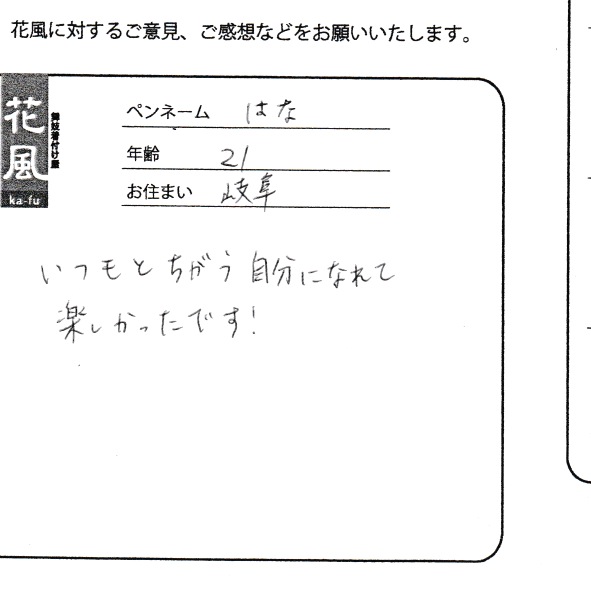 花風に対するご意見、ご感想などをお願いいたします。
花風
舞妓着付け屋
ka-fu
ペンネーム はな
年齢 21
お住まい 岐阜
いつもとちがう自分になれて
楽しかったです!